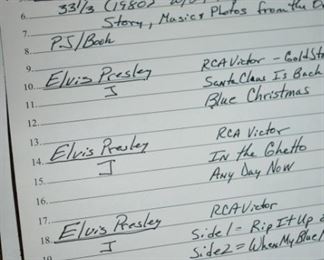 33 1/3 (1980)
6. Story, Music & Photos from the
7. P.J/Book
8.
9. RCA Victor - Gold St
10. Elvis Presley Santa Claus Is Back
11. J Blue Christmas
12.
13. RCA Victor
14. Elvis Presley In the Ghetto
15. J Any Day Now
16.
17. RCA Victor
18. Elvis Presley Side 1 = Rip It Up
J Side 2 = When My Blue